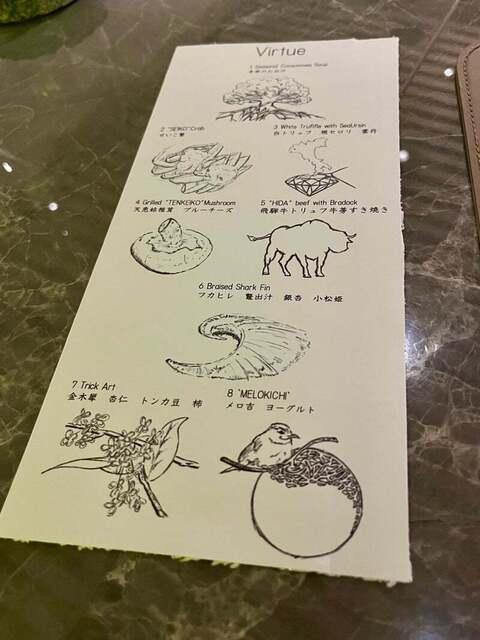 Virtue
1 Seasonal Consommee Soup
2 "SEIKO"Crab
せいこ蟹
3 White Truffle with SeaUrsin
白トリュフ 根セロリ 雲丹
4 Grilled "TENKEIKO"Mushroom
天恵菇椎茸 ブルーチーズ
5 "HIDA" beef with Bradock
飛騨牛トリュフ牛蒡すき焼き
6 Braised Shark Fin
フカヒレ 鼈出汁 銀杏 小松姫
7 Trick Art
金木犀 杏仁 トンカ豆 柿
8 'MELOKICHI'
メロ吉 ヨーグルト